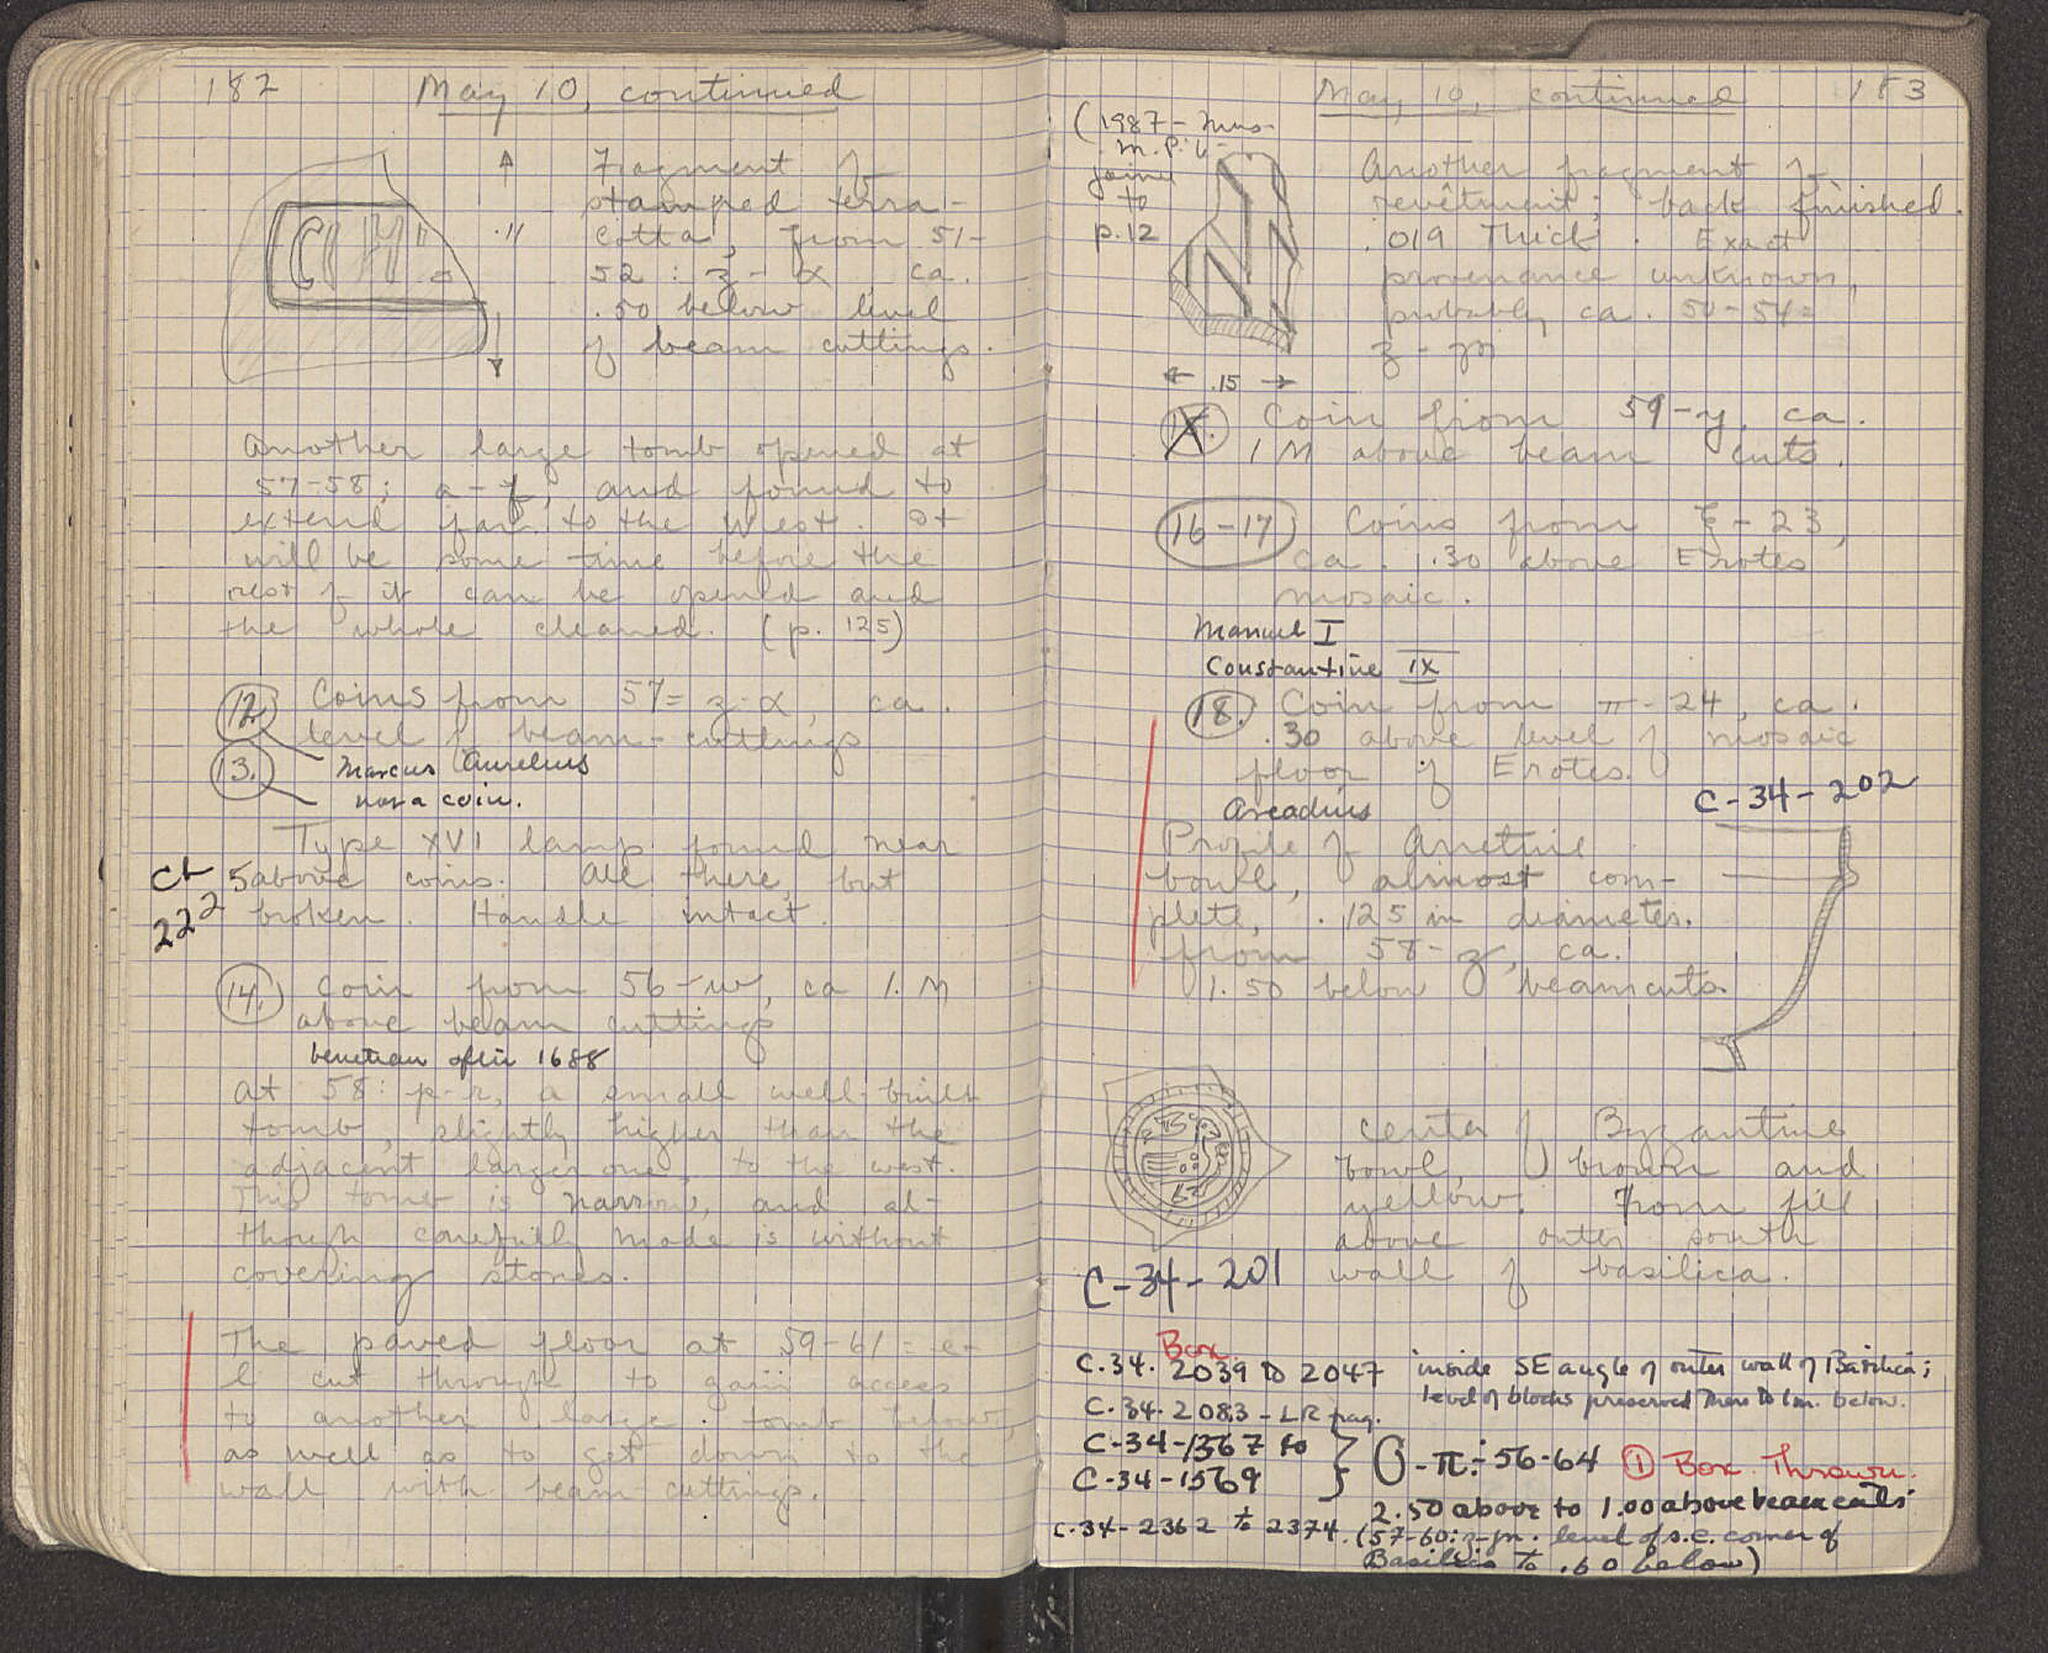 182 May 10, continued
Fragment of
stamped terra-
cotta, from 51-
52 : z - α ca.
.50 below level
of beam cuttings.
.11
CIH
Another large tomb opened at
57-58; a-f, and found to
extend far to the West. It
will be some time before the
rest of it can be opened and
the whole cleaned. (p. 125)
12. Coins from 57= z-α, ca.
level of beam-cuttings
13. Marcus Aurelius
not a coin.
Type XVI lamp found near
CL 5 above coins. All there, but
222 broken. Handle intact.
14. Coin from 56-w, ca 1. M
above beam cuttings
Venetian after 1688
At 58: p-r, a small well-built
tomb, slightly higher than the
adjacent larger one, to the west.
This tomb is narrow, and al-
though carefully made is without
covering stones.
The paved floor at 59-61 = e-
l cut through to gain access
to another large tomb below,
as well as to get down to the
wall with beam-cuttings.
May 10, continued 183
(1987-
joins
to
p.12
Another fragment of
revêtment; back finished.
.019 Thick. Exact
provenance unknown,
probably ca. 50-54=
z -
.15
15. Coin from 59-y, ca.
1 M above beam cuts.
16-17 Coins from ξ-23,
ca. .30 above Erotes
mosaic.
Manuel I
Constantine IX
18. Coin from π-24, ca.
.30 above level of mosaic
floor of Erotes.
Arcadius
C-34-202
Profile of Arretine
bowl, almost com-
plete, .125 in diameter.
from 58-z, ca.
1.50 below beamcuts.
Center of Byzantine
bowl, brown and
yellow. From fill
above outer south
wall of basilica.
C-34-201
Box
C.34. 2039 to 2047 inside SE angle of outer wall of Basilica;
level of blocks preserved there to 1m. below.
C.34.2083 - LR frag.
C-34-1367 to
C-34-1569
} -π:-56-64 ① Box Thrown.
2.50 above to 1.00 above beam cuts
C.34-2362 to 2374. (57-60: z- level of s.e. corner of
Basilica to .60 below)